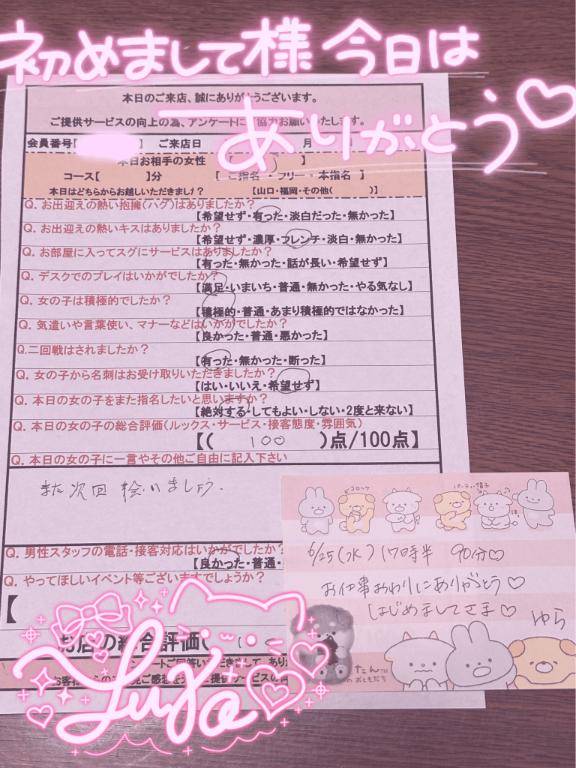 初めまして様 今日は
ありがとう♡
本日のご来店、誠にありがとうございます。
ご提供サービスの向上の為、アンケートにご協力お願いいたします。
会員番号【 】 ご来店日 月
本日お相手の女性 【 】
コース【 】分 【 ご指名・フリー・本指名 】
本日はどちらからお越しいただきました? 【山口・福岡・その他( )】
Q. お出迎えの熱い抱擁(ハグ)はありましたか?
【希望せず・有った・淡白だった・無かった】
Q. お出迎えの熱いキスはありましたか?
【希望せず・濃厚・フレンチ・淡白・無かった】
Q. お部屋に入ってスグにサービスはありましたか?
【有った・無かった・話が長い・希望せず】
Q. デスクでのプレイはいかがでしたか?
【満足・いまいち・普通・無かった・やる気なし】
Q. 女の子は積極的でしたか?
【積極的・普通・あまり積極的ではなかった】
Q. 気遣いや言葉使い、マナーなどはいかがでしたか?
【良かった・普通・悪かった】
Q.二回戦はされましたか?
【有った・無かった・断った】
Q. 女の子から名刺はお受け取りいただきましたか?
【はい・いいえ・希望せず】
Q. 本日の女の子をまた指名したいと思いますか?
【絶対する・してもよい・しない・2度と来ない】
Q. 本日の女の子の総合評価(ルックス・サービス・接客態度・雰囲気)
【( 100 )点/100点】
Q. 本日の女の子に一言やその他ご自由に記入下さい
また次回会いましょう。
Q. 男性スタッフの電話・接客対応はいかがでしたか?
【良かった・普通・
Q. やってほしいイベント等ございますでしょうか?
【
お店の総合評価(
Yura
6/25(水) 17時半 90分♡
お仕事おわりにありがとう♡
はじめましてさま♡
ゆら